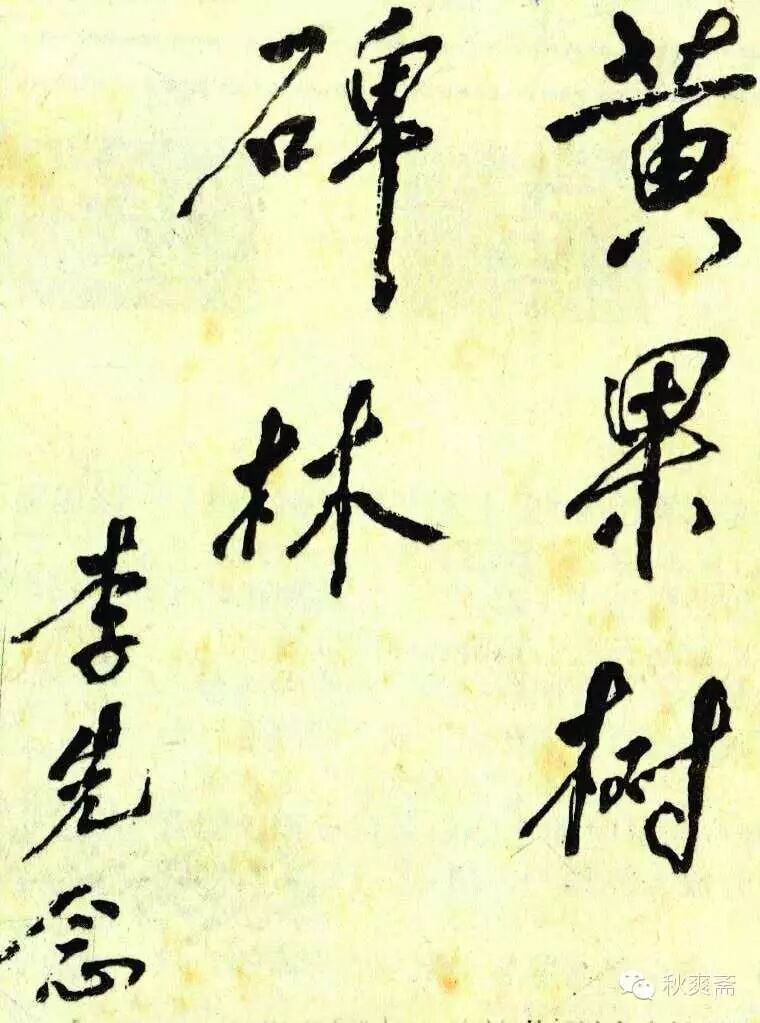 黄果树
碑林
李先念
秋爽斋